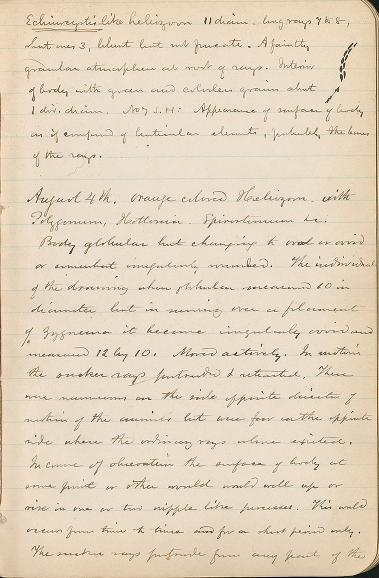 Echinocystis like heliozoon 11 diam. long rays 7 to 8,
short ones 3, blunt but not furcate. A faintly
granular atmosphere at root of rays. Interior
of body with green and colorless grains about
1 div. diam. No 7 S. H: Appearance of surface of body
as if composed of lenticular elements, probably the bases
of the rays.
August 4th. Orange colored Heliozoon with
Polygonum, Hottonia &c.
Body globular but changing to oval or ovoid
or somewhat irregularly rounded. The individual
of the drawing when globular measured 10 in
diameter but in moving over a filament
of Zygnema it became irregularly ovoid and
measured 12 by 10. Moved actively. In motion
the sucker rays protruded & retracted. These
were numerous on the side opposite direction of
motion of the animal but were few on the opposite
side where the ordinary rays alone existed.
In course of observation the surface of body at
some point or other would swell up or
rise in one or two nipple like processes. This would
occur from time to time and for a short period only.
The sucker rays protrude from any part of the